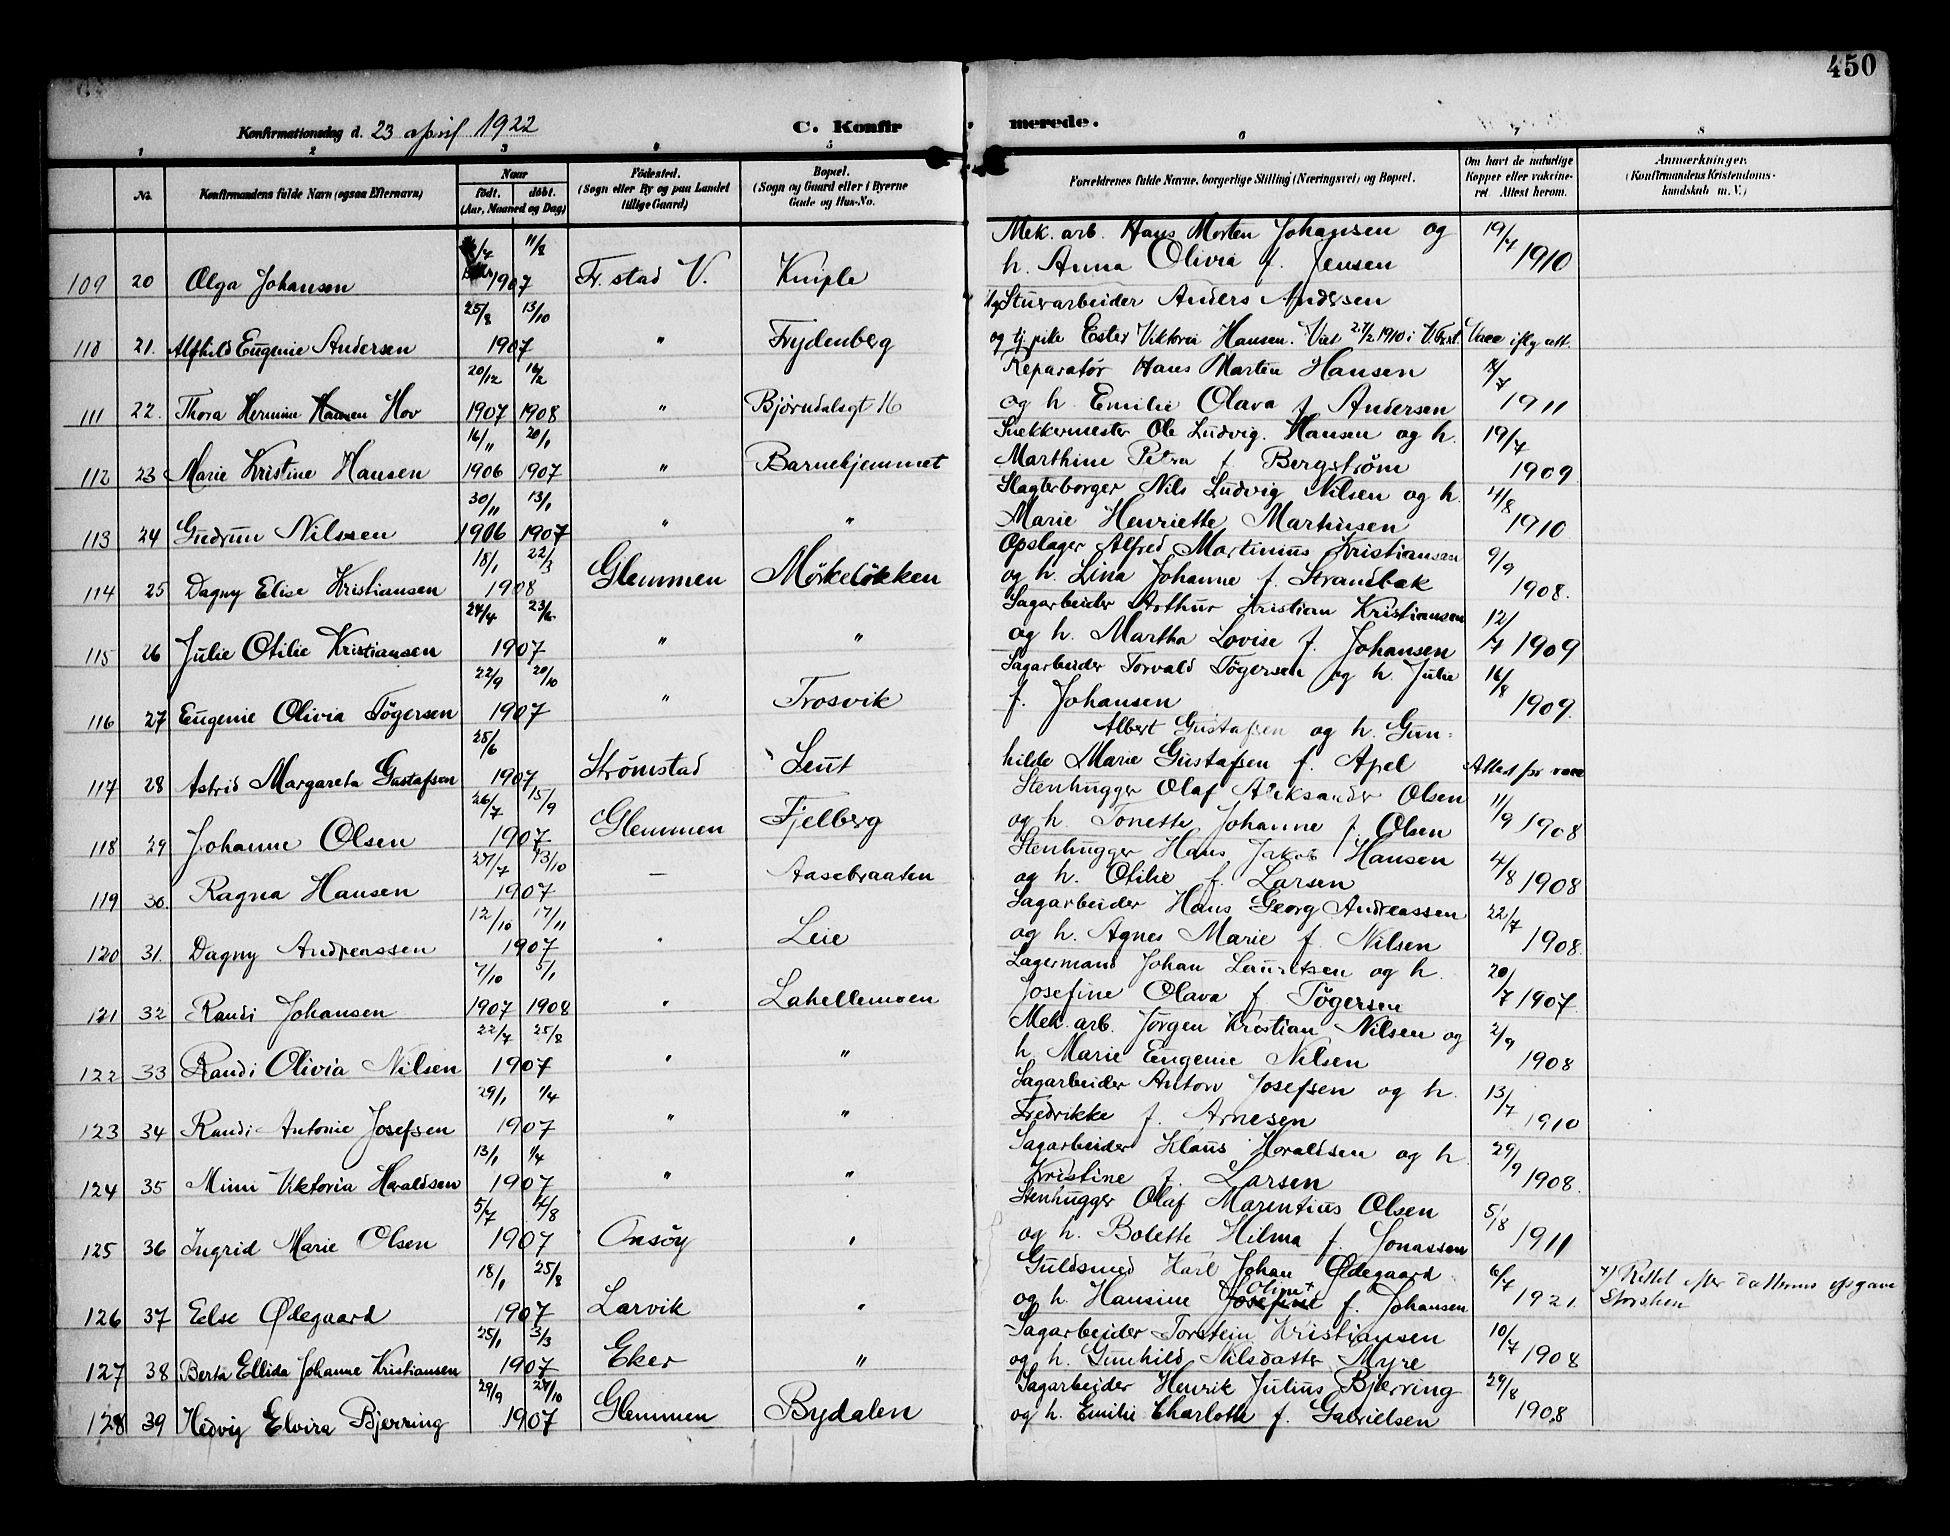 450
Konfirmationsdag d. 23 april 1922 C. Konfirmerede.
1 2 3 4 5 6 7 8
No. Konfirmandens fulde Navn (ogsaa Efternavn) Naar født. døbt. (Aar, Maaned og Dag) Fødested. (Sogn eller By og paa Landet tillige Gaard) Bopæl. (Sogn og Gaard eller i Byerne Gade og Hus-No. Forældrenes fulde Navne, borgerlige Stilling (Næringsvei) og Bopæl. Om havt de naturlige Kopper eller vaccineret Attest herom. Anmærkninger. (Konfirmandens Kristendomskundskab m. V.)
11/8 Mek. arb. Hans Morten Johansen og 19/7
109 20 Olga Johansen 1907 Fr. stad V. Kniple h. Anna Olivia f. Jensen 1910
25/8 13/10 Stuerarbeider Anders Andersen
110 21. Alfhild Eugenie Andersen 1907 " Frydenberg og tj. pike Ester Viktoria Hansen. Viet 27/2 1910 i V. Frst. Vacc ifly att.
20/12 16/2 Reparatør Hans Martin Hansen
111 22. Thora Hermine Hansen Hov 1907 1908 " Bjørndalsgt 16 og h. Emilie Olava f. Andersen 1911
16/11 20/1 Snekkermester Ole Ludvig Hansen og h. 19/7
112 23 Marie Kristine Hansen 1906 1907 " Barnehjemmet Marthine Petra f. Bergstrøm 1909
30/11 13/1 Slagterborger Nils Ludvig Nilsen og h. 4/8
113 24 Gudrun Nilssen 1906 1907 " " Marie Henriette Martinsen 1910
18/1 22/3 Opslager Alfred Martinius Kristiansen 9/9
114 25 Dagny Elise Kristiansen 1908 Glemmen Mørkeløkken og h. Lina Johanne f. Strandbak 1908.
24/4 23/6 Sagarbeider Arthur Kristian Kristiansen 12/7
115 26 Julie Otilie Kristiansen 1907 " " og h. Martha Lovise f. Johansen 1909
22/9 20/10 Sagarbeider Torvald Tøgersen og h. Julie 16/8
116 27 Eugenie Olivia Tøgersen 1907 " Trosvik f. Johansen 1909.
25/6 Albert Gustafsen og h. Gun-
117 28 Astrid Margareta Gustafsen 1907 Strømstad Leut hilde Marie Gustafsen f. Apel Attest for vacc
26/7 15/9 Stenhugger Olaf Aleksander Olsen 11/9
118 29 Johanne Olsen 1907 Glemmen Fjelberg og h. Tonette Johanne f. Olsen 1908
27/7 13/10 Stenhugger Hans Jakob Hansen 4/8
119 30. Ragna Hansen 1907 — Aasebraaten og h. Otilie f. Larsen 1908
12/10 17/11 Sagarbeider Hans Georg Andreassen 22/7
120 31. Dagny Andreassen 1907 " Leie og h. Agnes Marie f. Nilsen 1908.
7/10 5/1 Lagermand Johan Lauretsen og h. 20/7
121 32 Randi Johansen 1907 1908 " Lahellemoen Josefine Olava f. Tøgersen 1907
22/7 25/8 Mek. arb. Jørgen Kristian Nilsen og 2/9
122 33 Randi Olivia Nilsen 1907 " " h. Marie Eugenie Nilsen 1908
29/1 1/4 Sagarbeider Anton Josefsen og h. 13/7
123 34 Randi Antonie Josefsen 1907 " " Fredrikke f. Arnesen 1910
13/1 1/4 Sagarbeider Klaus Haraldsen og h. 29/9
124 35 Mimi Viktoria Haraldsen 1907 " " Kristine f. Larsen 1908.
5/7 4/8 Stenhugger Olaf Marentius Olsen 5/8
125 36 Ingrid Marie Olsen 1907 Onsøy " og h. Bolette Hilma f. Jonassen 1911
18/1 25/8 Guldsmed Karl Johan Ødegaard 6/7 x) Rettet efter datterens opgave
126 37 Else Ødegaard 1907 Larvik " og h. Hansine Josefine f. Johansen 1921.
25/1 3/3 Sagarbeider Torstein Kristiansen 10/7
127 38 Berta Ellida Johanne Kristiansen 1907 Eker " og h. Gunhild Nilsdatter Myre 1908
29/9 27/10 Sagarbeider Henrik Julius Bjerring 29/8
128 39 Hedvig Elvira Bjerring 1907 Glemmen Bydalen og h. Emilie Charlotte f. Gabrielsen 1908